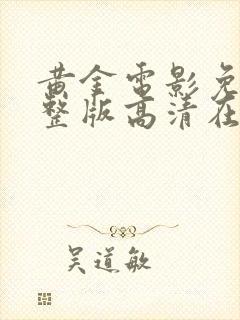 黄金电影免
整版高清在
吴道敏